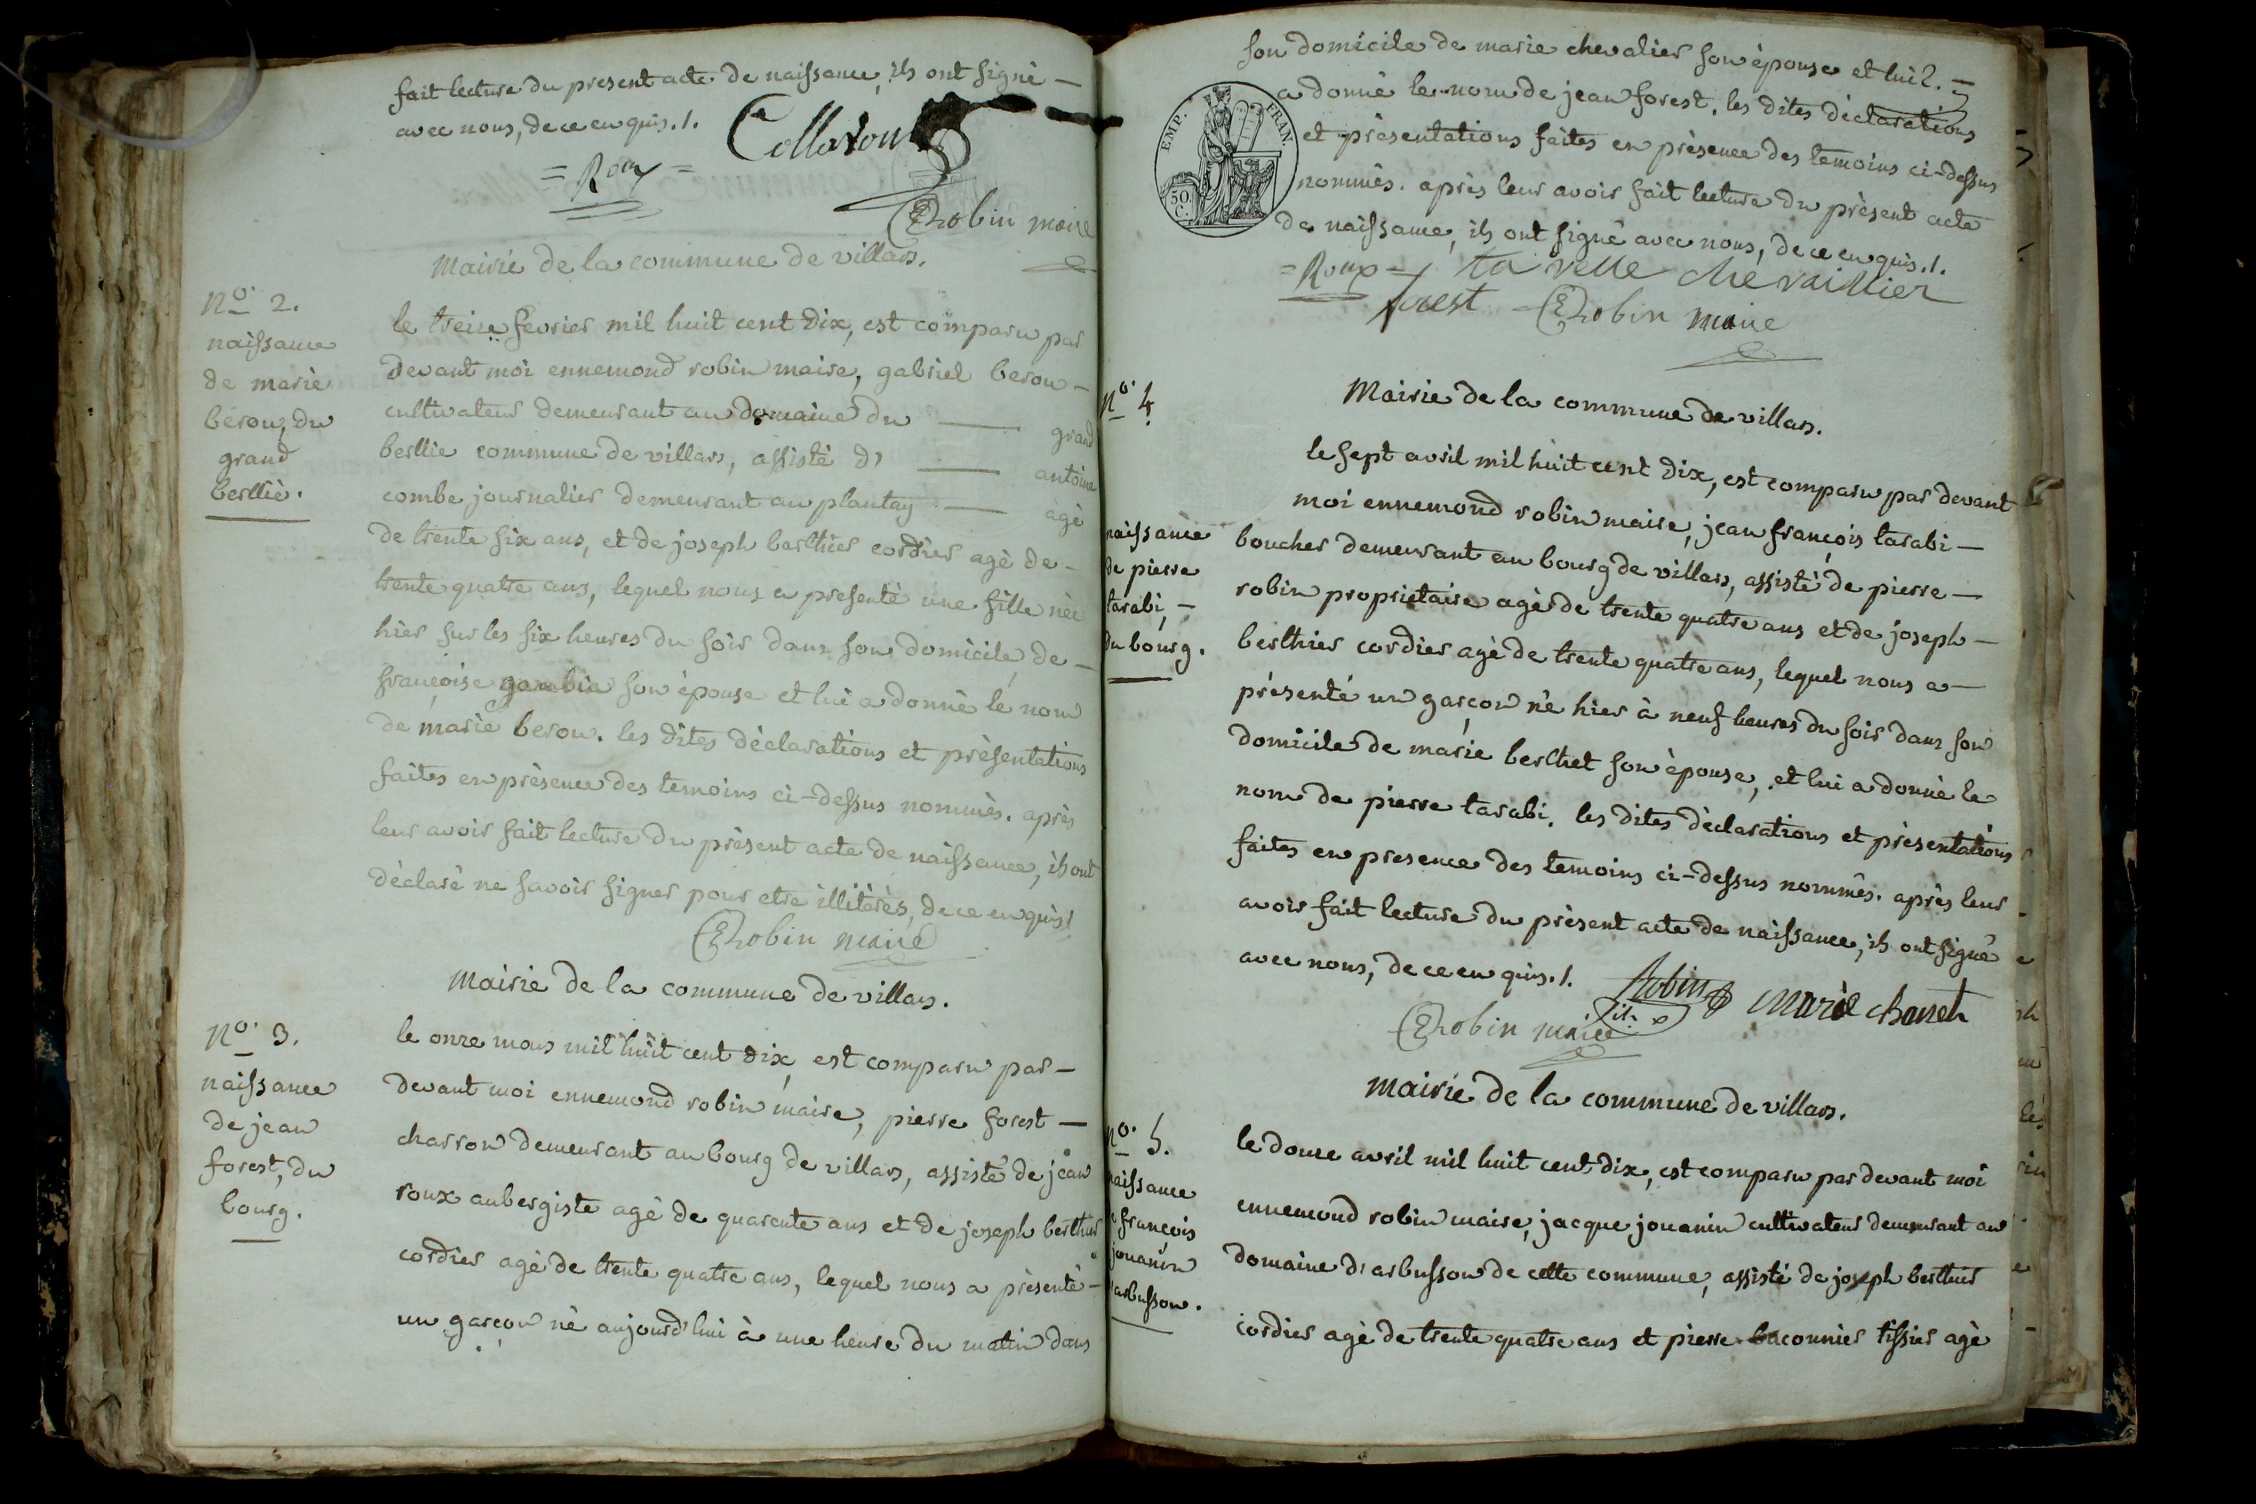 fait lecture du present acte de naissance, ils ont signé —
avec nous, de ce enquis./.
= Roux =
Robin maire
Mairie de la commune de villars.
No. 2.
naissance
de marie
beron, du
grand
berlliè.
le treize fevrier mil huit cent dix, est comparu par
devant moi ennemond robin maire, gabriel beron —
cultivateur demeurant au domaine du — grand
berllie commune de villars, assisté d' — antoine
combe journalier demeurant au plantay — agé
de trente six ans, et de joseph berthier cordier agè de —
trente quatre ans, lequel nous a presenté une fille nèe
hier sur les six heures du soir dans son domicile, de —
françoise son èpouse et lui a donné le nom
de marie beron. les dites dèclarations et prèsentations
faites en prèsence des temoins ci-dessus nommès. après
leur avoir fait lecture du prèsent acte de naissance, ils ont
dèclarè ne savoir signer pour etre illitèrès, de ce enquis/.
Robin maire
Mairie de la commune de villars.
No. 3.
naissance
de jean
forest, du
bourg.
le onze mars mil huit cent dix, est comparu par —
devant moi ennemond robin maire, pierre forest —
charron demeurant au bourg de villars, assisté de jean
roux aubergiste agé de quarente ans et de joseph berthier
cordier agé de trente quatre ans, lequel nous a prèsenté —
un garçon nè aujourd'hui à une heure du matin dans
son domicile de marie chevalier son èpouse et lui —
a donné le nom de jean forest. les dites dèclarations
et prèsentations faites en prèsence des temoins ci-dessus
nommès. après leur avoir fait lecture du prèsent acte
de naissance, ils ont signé avec nous, de ce enquis./.
EMP. FRAN.
50 C.
= Roux = ta velle chevaillier
forest Robin maire
No. 4
Mairie de la commune de villars.
naissance
de pierre
tarabi, —
du bourg.
le sept avril mil huit cent dix, est comparu par devant
moi ennemond robin maire, jean françois tarabi —
boucher demeurant au bourg de villars, assisté de pierre —
robin propriètaire agè de trente quatre ans et de joseph —
berthier cordier agè de trente quatre ans, lequel nous a —
prèsenté un garçon nè hier à neuf heures du soir dans son
domicile de marie berthet son èpouse, et lui a donnè le
nom de pierre tarabi. les dites dèclarations et prèsentations
faites en presence des temoins ci-dessus nommès. après leur
avoir fait lecture du prèsent acte de naissance, ils ont signè
avec nous, de ce enquis./.
Robin
Robin maire
Mairie de la commune de villars.
No. 5.
naissance
françois
jouanin
arbusson.
le douze avril mil huit cent dix, est comparu par devant moi
ennemond robin maire, jacque jouanin cultivateur demeurant au
domaine d'arbusson de cette commune, assisté de joseph berthier
cordier agè de trente quatre ans et pierre baconnier tissier agè